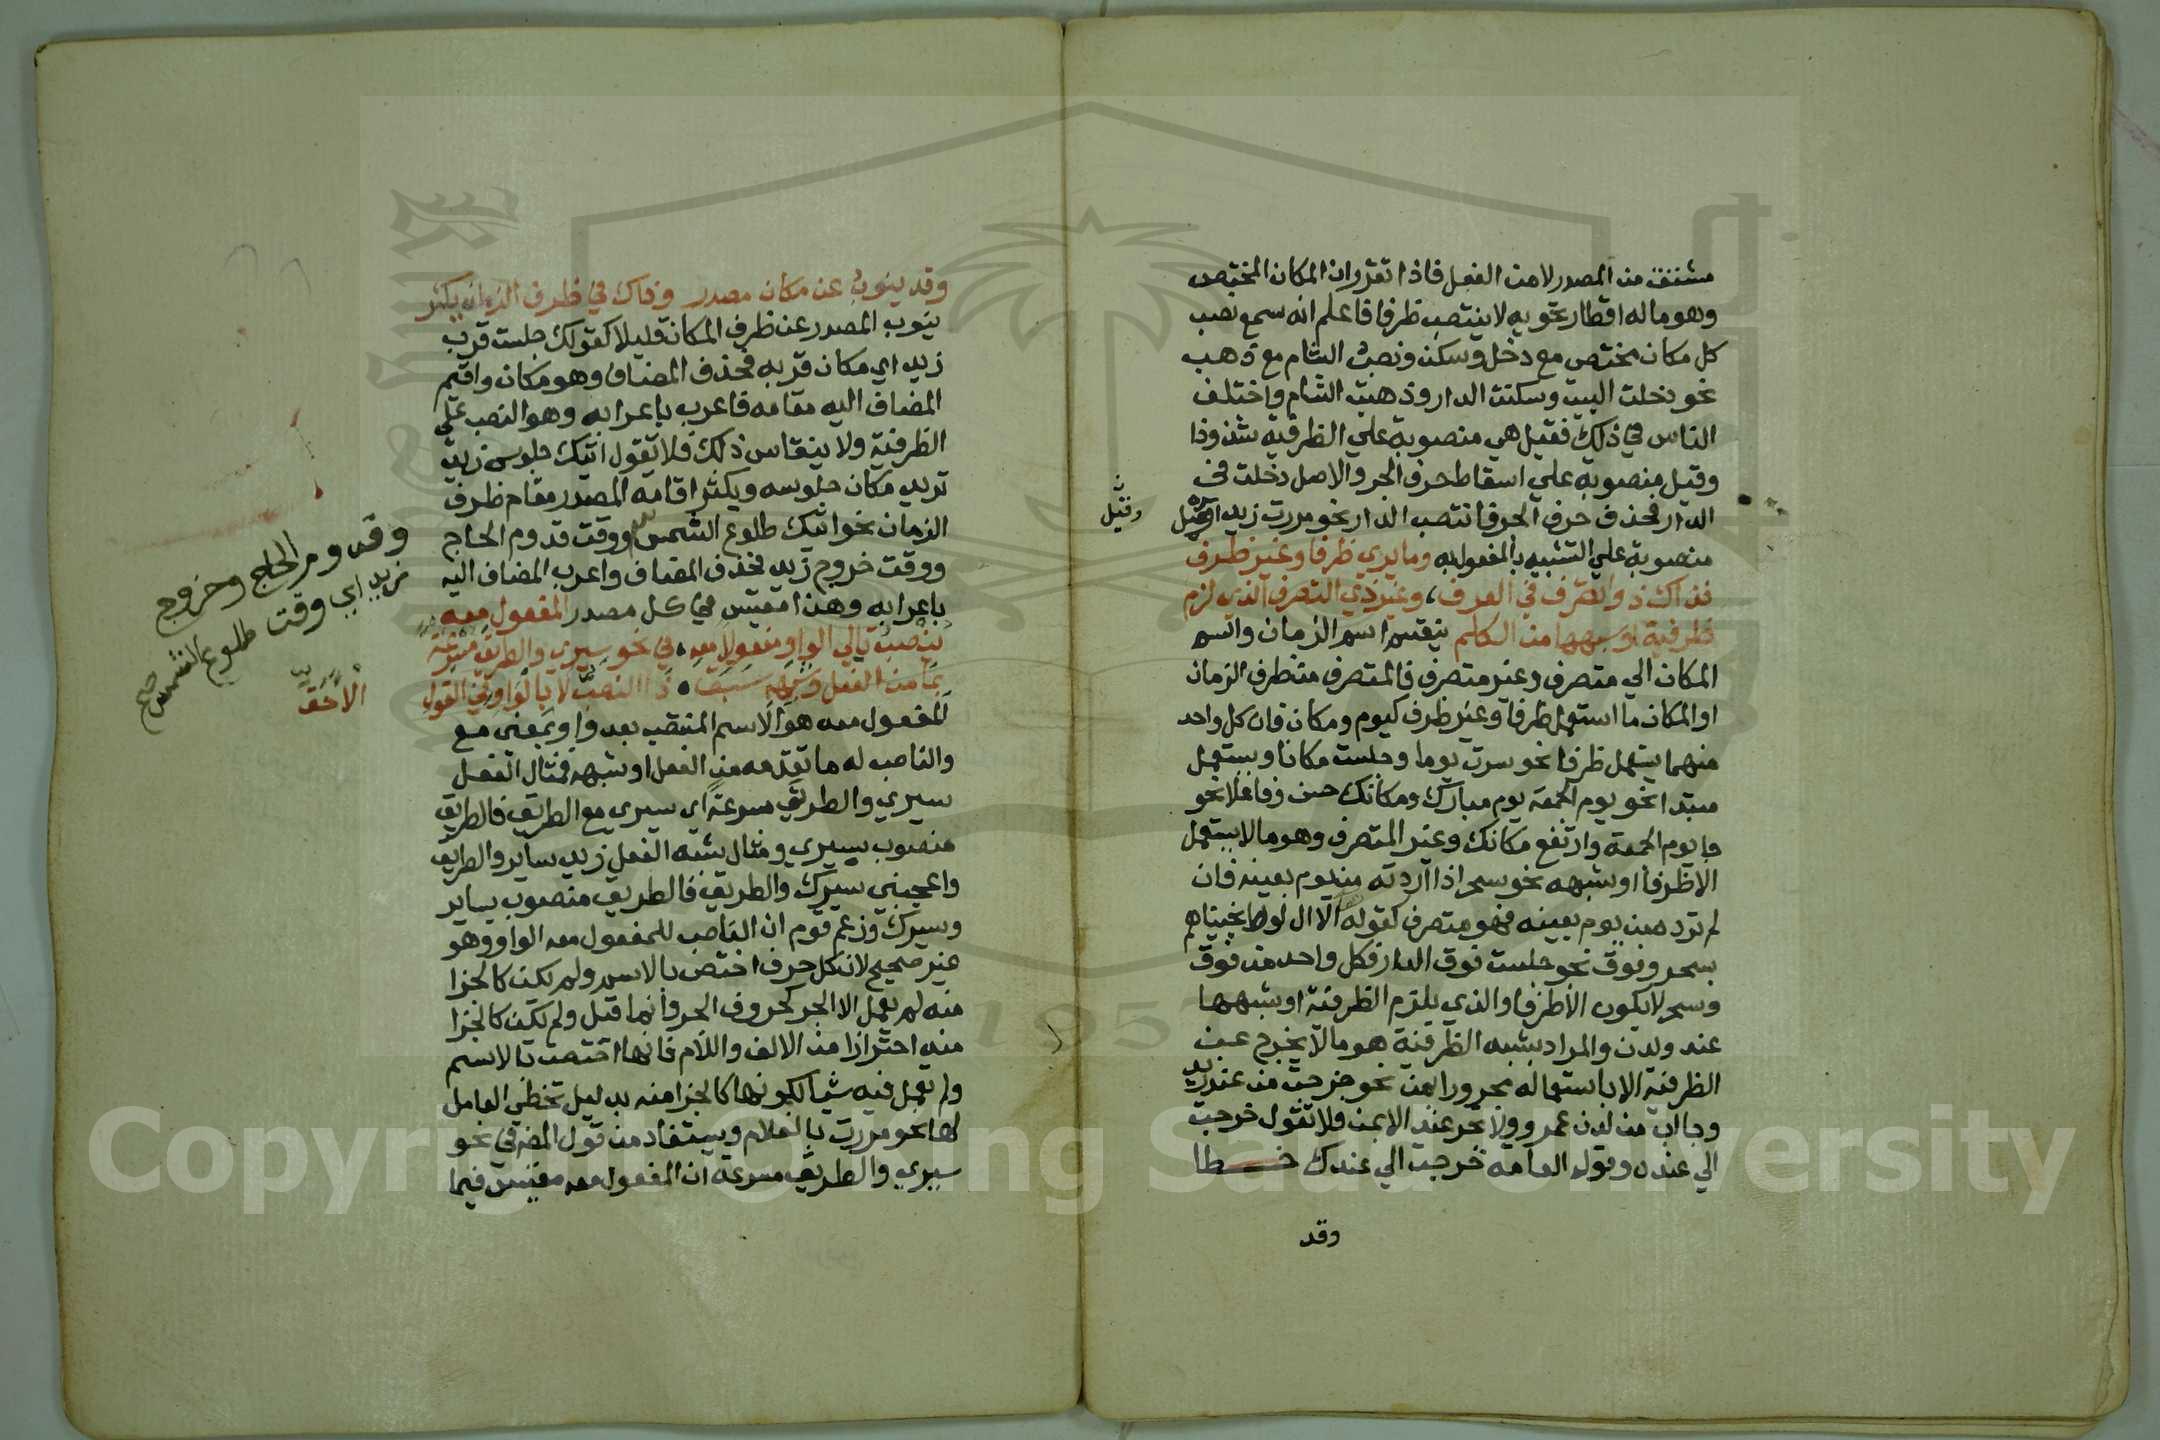 مشتق من المصدر لا من الفعل فاذا تقرر ان المكان المختص
وهو ما له اقطار تحويه لا ينتصب ظرفا فاعلم انه سمع نصب
كل مكان مختص مع دخل وسكن ونصب الشام مع ذهب
نحو دخلت البيت وسكنت الدار وذهبت الشام واختلف
الناس في ذلك فقيل هي منصوبة على الظرفية شذوذا
وقيل منصوبة علي اسقاط حرف الجر والاصل دخلت في
الدار فحذف حرف الجر فانتصب الدار نحو مررت زيدا وقيل
وقيل
منصوبة علي التشبيه بالمفعول به وما يري ظرفا وغير ظرف
فذاك ذو تصرف في العرف، وغير ذي التصرف الذي لزم
ظرفية او شبهها من الكلم ينقسم اسم الزمان واسم
المكان الي متصرف وغير متصرف فالمتصرف من ظرف الزمان
او المكان ما استعمل ظرفا وغير ظرف كيوم ومكان فان كل واحد
منهما يستعمل ظرفا نحو سرت يوما وجلست مكانا ويستعمل
مبتدا نحو يوم الجمعة يوم مبارك ومكانك حسن وفاعلا نحو
جا يوم الجمعة وارتفع مكانك وغير المتصرف وهو ما لا يستعمل
الا ظرفا او شبهه نحو سحر اذا اردته من يوم بعينه فان
لم ترده من يوم بعينه فهو متصرف كقوله الا ال لوط نجيناهم
بسحر وفوق نحو جلست فوق الدار فكل واحد من فوق
وسحر لا يكون الا ظرفا والذي يلزم الظرفية او شبهها
عند ولدن والمراد بشبه الظرفية هو ما لا يخرج عن
الظرفية الا باستعماله مجرورا بمن نحو خرجت من عند زيد
وجا اب من لدن عمرو ولا تجر عند الا بمن فلا تقول خرجت
الي عنده وقول العامة خرجت الي عندك خطا
وقد
وقد ينوب عن مكان مصدر وذاك في ظرف الزمان يكثر
ينوب المصدر عن ظرف المكان قليلا كقولك جلست قرب
زيد اي مكان قربه فحذف المضاف وهو مكان واقيم
المضاف اليه مقامه فاعرب باعرابه وهو النصب على
الظرفية ولا ينقاس ذلك فلا تقول اتيك جلوس زيد
تريد مكان جلوسه ويكثر اقامة المصدر مقام ظرف
الزمان نحو اتيك طلوع الشمس ووقت قدوم الحاج
ووقت خروج زيد فحذف المضاف واعرب المضاف اليه
باعرابه وهذا مقيس في كل مصدر المفعول معه
ينصب تالي الواو مفعولا معه، في نحو سيري والطريق مسرعة
بما من الفعل وشبهه سبق ذا النصب لا بالواو في القول
الاحق
المفعول معه هو الاسم المنتصب بعد واو بمعني مع
والناصب له ما تقدمه من الفعل او شبهه فمثال الفعل
سيري والطريق مسرعة اي سيري مع الطريق فالطريق
منصوب بسيري ومثال شبه الفعل زيد ساير والطريق
واعجبني سيرك والطريق فالطريق منصوب بساير
وسيرك وزعم قوم ان الناصب للمفعول معه الواو وهو
غير صحيح لان كل حرف اختص بالاسم ولم يكن كالجزا
منه لم يعمل الا الجر كحروف الجر وانما قيل ولم يكن كالجزا
منه احترازا من الالف واللام فانها اختصت بالاسم
ولم يعمل فيه شيا لكونها كالجزا منه بدليل تخطي العامل
لها نحو مررت بالغلام ويستفاد من قول المص في نحو
سيري والطريق مسرعة ان المفعول معه مقيس فيما
وقدوم الحاج وخروج
زيد اي وقت طلوع الشمس صح